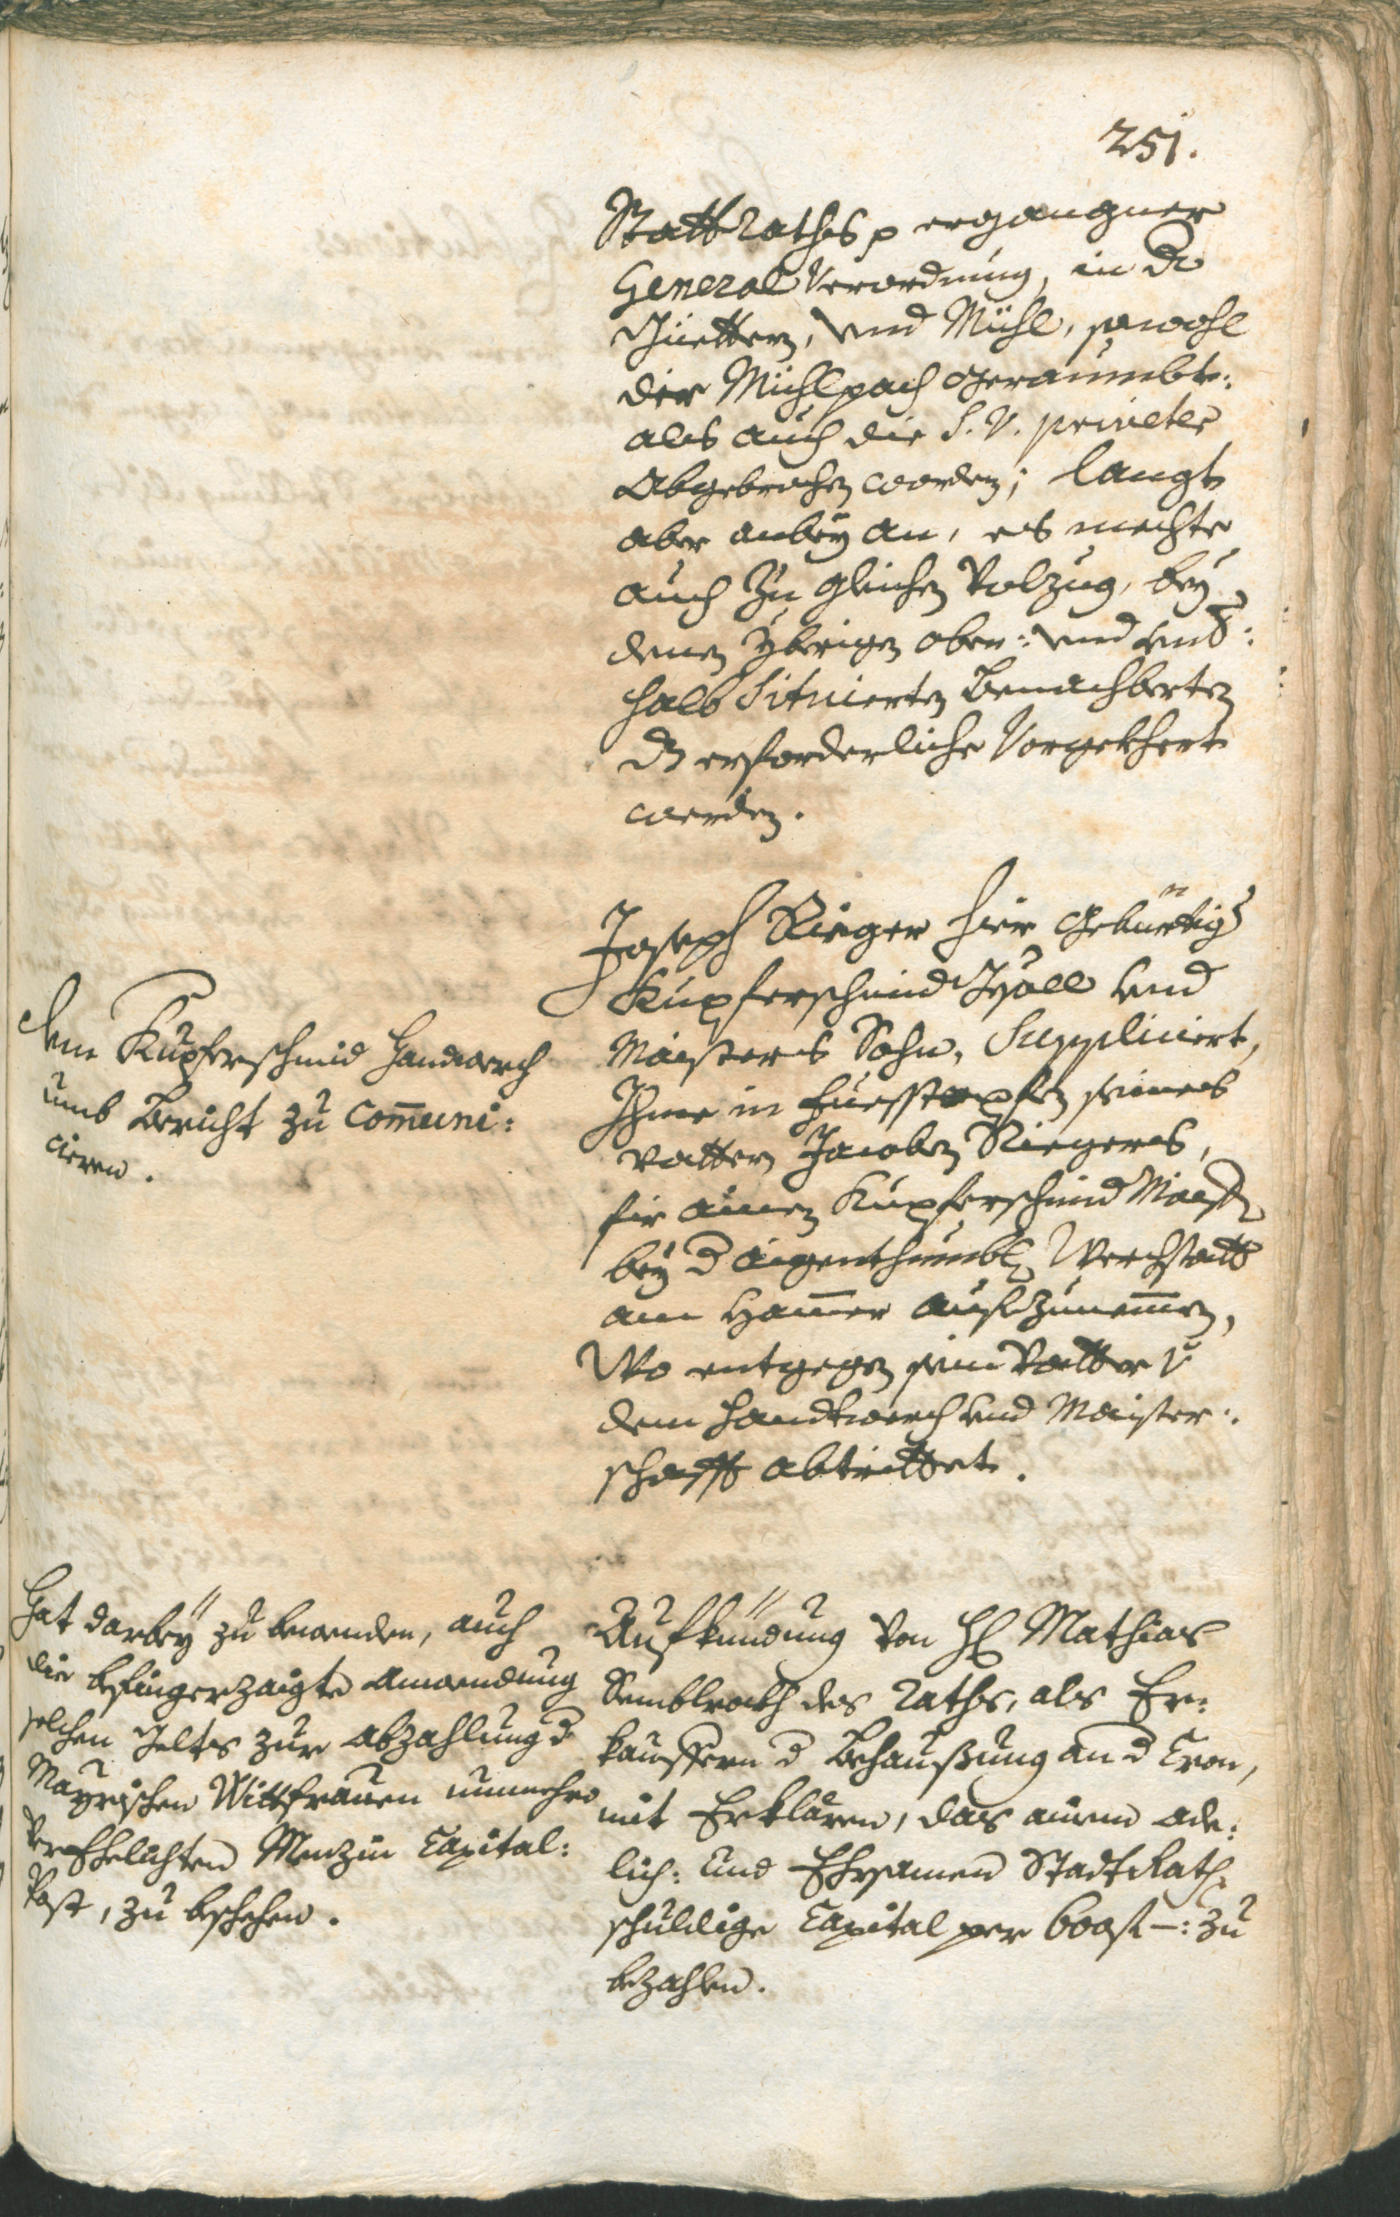 251.
Statt Raths p ergangner
General Verordnung, in der
Güettern, und Mühl, sowohl
der Mühlpach geraumbt:
als auch die S. V. privetter
Abgebrochen worden; langt
aber anbey an, es mechte
auch zu gleichen Volzug, bey
denen Ybrigen ober: und und:
halb Situierten Benachberten
dz erforderliche Vorgekhert
werden.
Joseph Rieger hier gebürtiger
Kupferschmid Gsöll und
Maisters Sohn, Suppliciert,
Ihme in Fuesstapfen seines
Vattern Jacoben Riegers,
fir ainen Kupferschmid Maister
bey d aigenthumbl. Werchstatt
am Hammer aufzunemmen,
Wo entgegen sein Vatter
dem Handtwerch und Maister:
schafft abtrittet.
Dem Kupferschmid Handwerch
umb Bericht zu Communi:
cieren.
Aufkündung von H. Mathias
Semblrockh des Raths, als Er:
kauffern d Behaußung an d Cron,
mit Erklären, das ainem Ade:
lich: und Ehrsamen Stadt Rath
schuldige Capital per 600 fl –: zu
bezahlen.
Hat darbey zu bewenden, auch
die befingerzaigte Anwendung
solchen Gelts zur Abzahlung d
Mayrischen Wittfrauen nunmehro
Verehelichten Menzin Capital:
Post, zu beschehen.